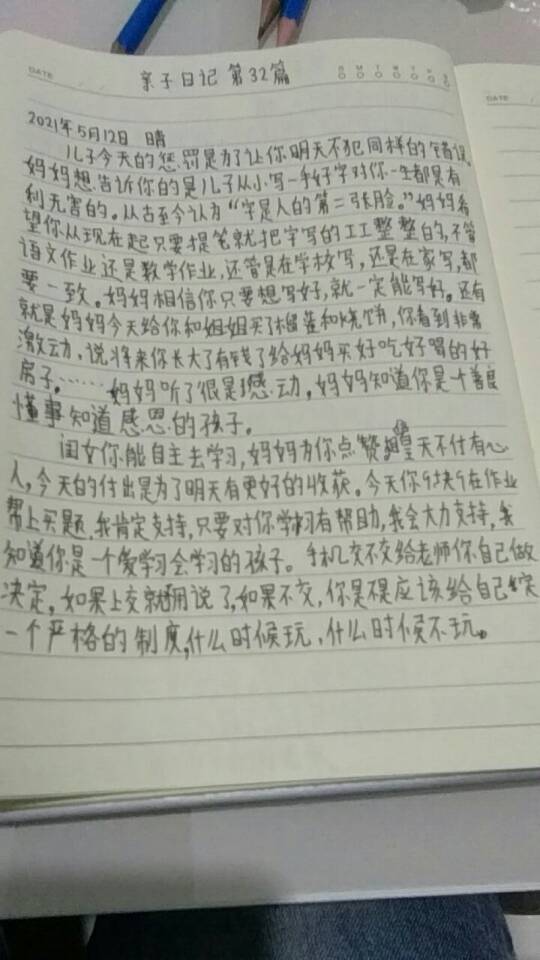 DATE
亲子日记 第32篇
S M T W T F S
DATE
2021年5月12日 晴
儿子今天的惩罚是为了让你明天不犯同样的错误,
妈妈想告诉你的是儿子从小写一手好字对你一生都是有
利无害的。从古至今认为“字是人的第二张脸。”妈妈希
望你从现在起只要提笔就把字写的工工整整的,不管
语文作业还是数学作业,还管是在学校写,还是在家写,都
要一致。妈妈相信你只要想写好,就一定能写好。还有
就是妈妈今天给你和姐姐买了榴莲和烧饼,你看到非常
激动,说将来你长大了有钱了给妈妈买好吃好喝的好
房子。……妈妈听了很是感动,妈妈知道你是个善良
懂事知道感恩的孩子。
闺女你能自主去学习,妈妈为你点赞,皇天不付有心
人,今天的付出是为了明天有更好的收获。今天你9块9在作业
帮上买题,我肯定支持,只要对你学习有帮助,我会大力支持,我
知道你是一个爱学习会学习的孩子。手机交不交给老师你自己做
决定,如果上交就不用说了,如果不交,你是不是应该给自己定
一个严格的制度,什么时候玩、什么时候不玩。